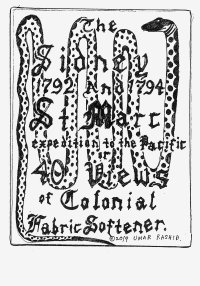 The
Sidney
1792 And 1794
St Marc
expedition to the Pacific
or
40 Views
of Colonial
Fabric Softener.
©2019 UMAR RASHID.